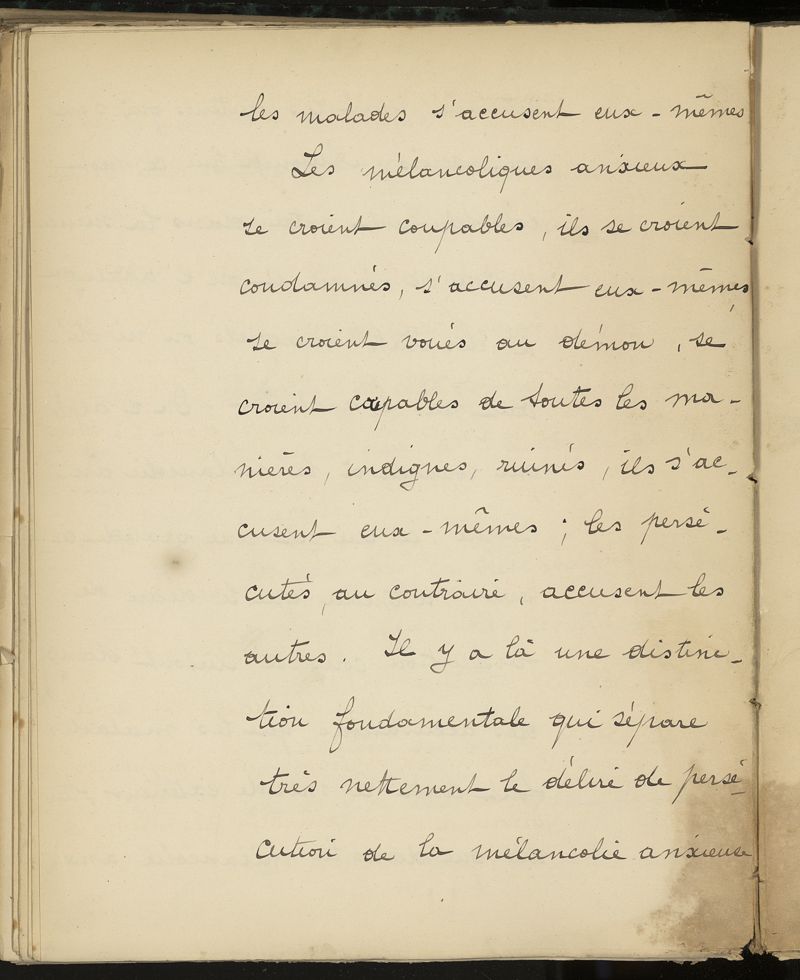 les malades s'accusent eux-mêmes
Les mélancoliques anxieux
se croient coupables, ils se croient
condamnés, s'accusent eux-mêmes,
se croient voués au démon, se
croient capables de toutes les ma-
nières, indignes, ruinés, ils s'ac-
cusent eux-mêmes ; les persé-
cutés, au contraire, accusent les
autres. Il y a là une distinc-
tion fondamentale qui sépare
très nettement le délire de persé-
cution de la mélancolie anxieuse